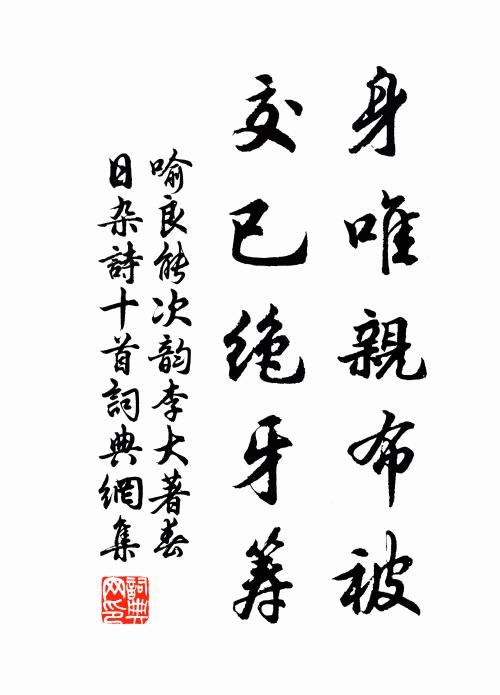 身唯親布被
交已絶牙筹
喻良能次韵李大著春
日杂詩十首詞典網集
詞典
网印